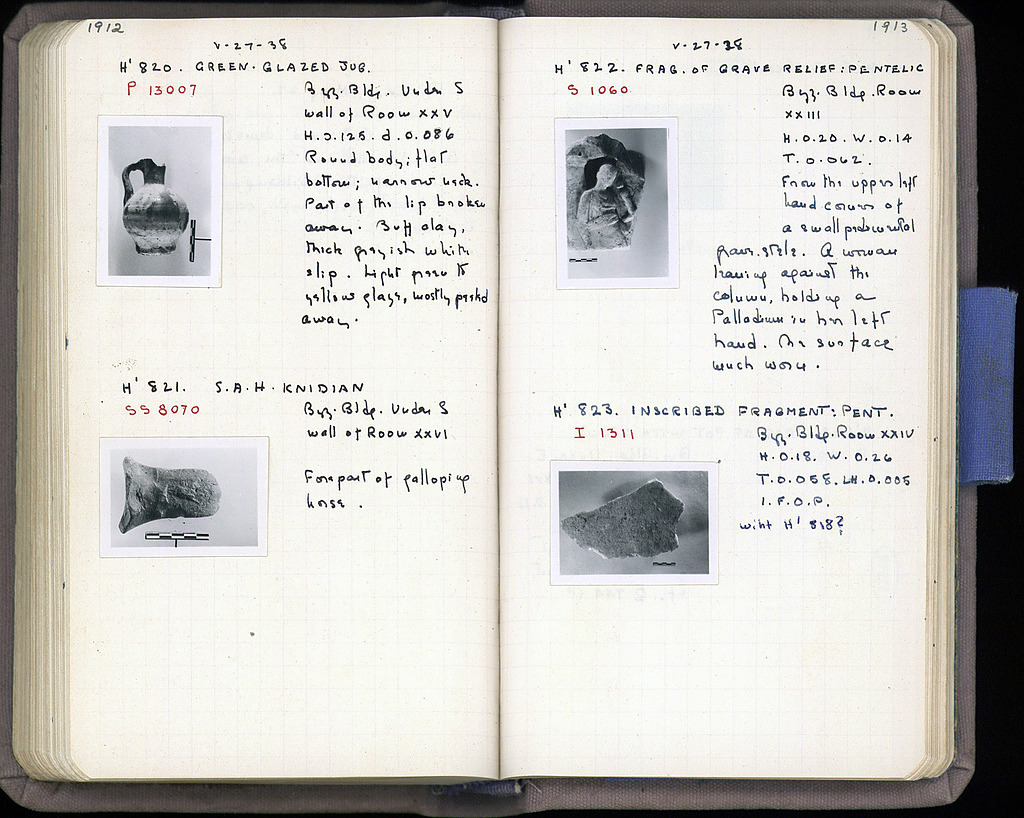 1912
V-27-38
H' 820. GREEN-GLAZED JUG.
P 13007
Byz. Bldg. Under S
wall of Room XXV
H. 0.125. d. 0.086
Round body; flat
bottom; narrow neck.
Part of the lip broken
away. Buff clay,
thick grayish white
slip. Light green to
yellow glaze, mostly peeled
away.
H' 821. S.A.H. KNIDIAN
SS 8070
Byz. Bldg. Under S
wall of Room XXVI
Forepart of galloping
horse.
1913
V-27-38
H' 822. FRAG. OF GRAVE RELIEF: PENTELIC
S 1060
Byz. Bldg. Room
XXIII
H. 0.20. W. 0.14
T. 0.062.
From the upper left
hand corner of
a small
grave stele. A woman
leaning against the
column, holding a
Palladium in her left
hand. The surface
much worn.
H' 823. INSCRIBED FRAGMENT: PENT.
I 1311
Byz. Bldg. Room XXIV
H. 0.18. W. 0.26
T. 0.058. LH. 0.005
I. F. O. P.
wiht H' 818?